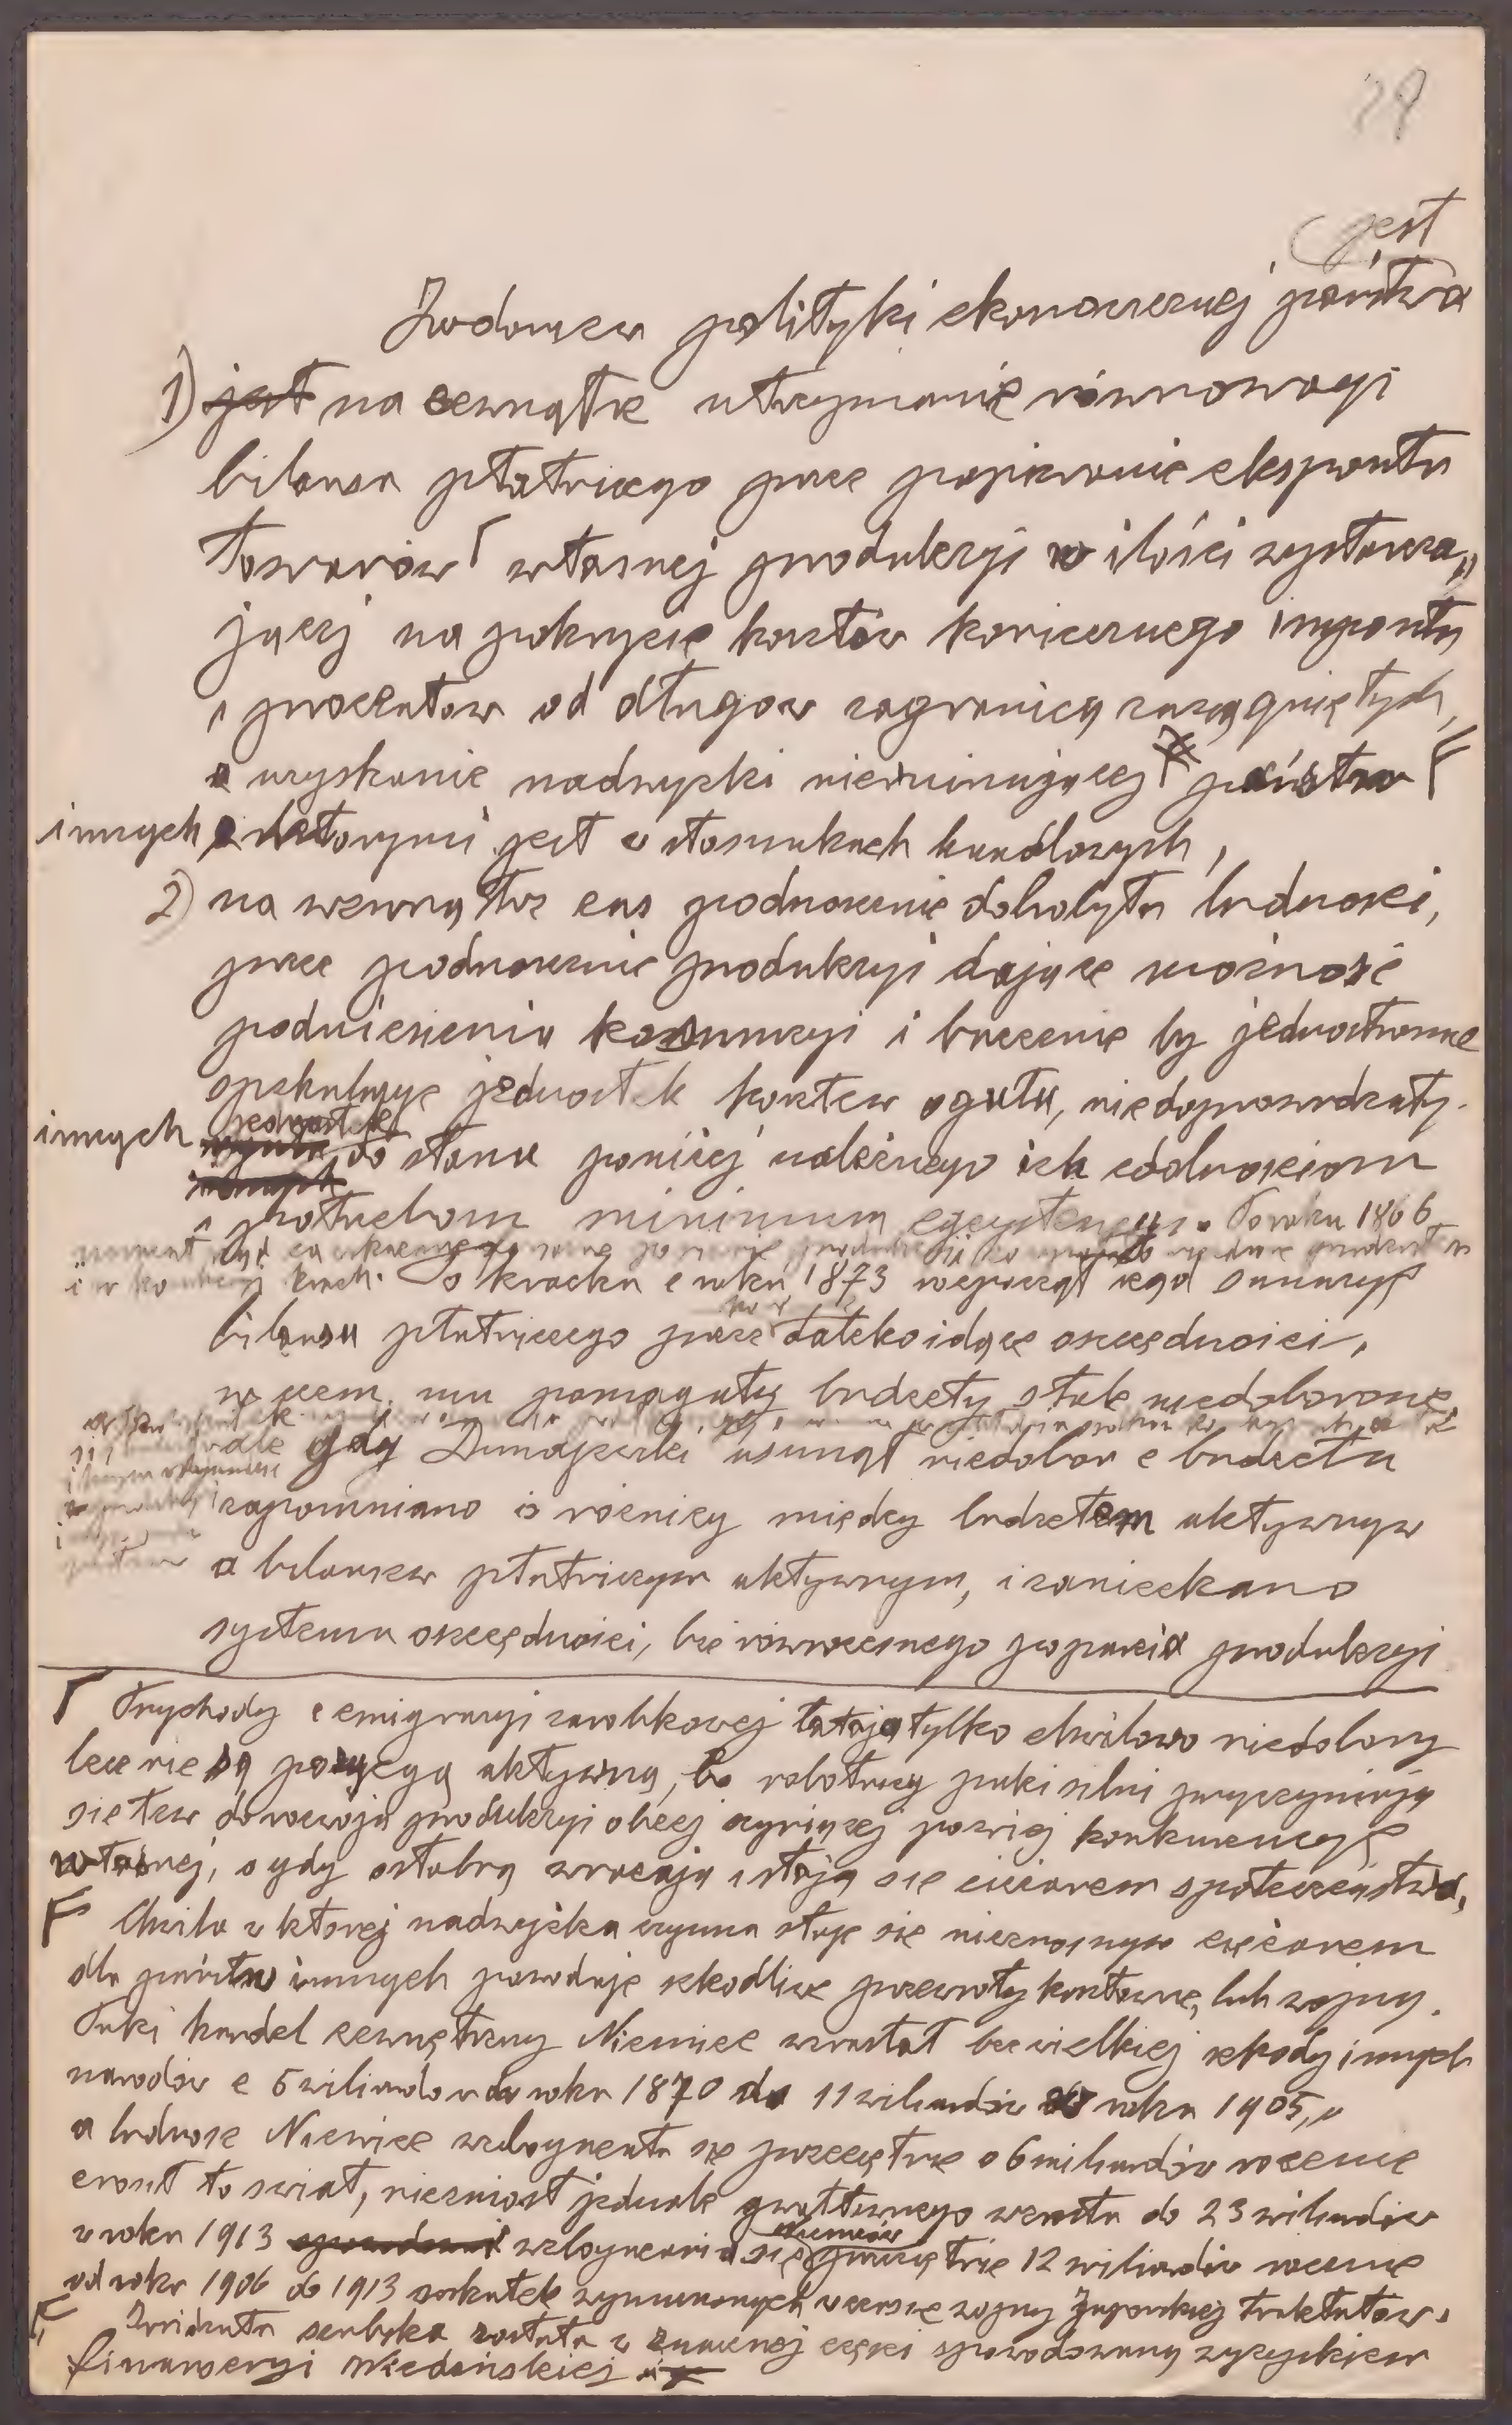 29
jest
Zadaniem polityki ekonomicznej państwa
1) jest na zewnątrz utrzymanie równowagi
bilansu płatniczego przez popieranie eksportu
towarów własnej produkcyi w ilości wystarcza„
jącej na pokrycie kosztów koniecznego importu
i procentów od długów zagranicą zaciągniętych,
a uzyskanie nadwyżki nierujnującej państw
innych z którymi jest w stosunkach handlowych,
2) na wewnątrz zaś podnoszenie dobrobytu ludności,
przez podnoszenie produkcyi dające możność
podniesienia konsumcyi i baczenie by jednostronne
spekulacye jednostek kosztem ogułu, niedoprowadzały
innych jednostek do stanu poniżej należnego ich zdolnościom
i potrzebom minimum egzystencyi. Po roku 1866
i w krach. Po krachu z roku 1873 rozpoczął rząd sanacyę
bilansu płatniczego przez daleko idące oszczędności,
w czem mu pomagały budżety stale niedoborowe,
ale gdy Dunajewski usunął niedobór z budżetu
zapomniano o różnicy między budżetem aktywnym
a bilansem płatniczym aktywnym, i zaniechano
systemu oszczędności, bez równoczesnego poparcia produkcyi
Przychody z emigracyi zarobkowej łatają tylko chwilowo niedobory
lecz nie są pozycyą aktywną, bo robotnicy puki silni przyczyniają
się tam do rozwoju produkcyi obcej czyniącej poźniej konkurencyę
własnej, a gdy osłabną wracają i stają się ciężarem społeczeństwa,
Chwila w której nadwyżka czynna staje się nieznośnym ciężarem
dla państw innych powoduje szkodliwe przewroty kosztowne, lub wojny.
Taki handel zewnętrzny Niemiec wzrastał bez wielkiej szkody innych
narodów z 6 miliardów w roku 1870 do 11 miliardów roku 1905,
a ludność Niemiec wzbogacała się przeciętnie o 6 miliardów rocznie
zniósł to świat, niezniósł jednak gwałtownego wzrostu do 23 miliardów
w roku 1913 wzbogacania się Niemców przeciętnie 12 miliardów rocznie
od roku 1906 do 1913 wskutek wymuszonych w czasie wojny Japońskiej traktatów.
serbska została w znacznej części spowodowaną wyzyskiem
finansieryi Wiedeńskiej